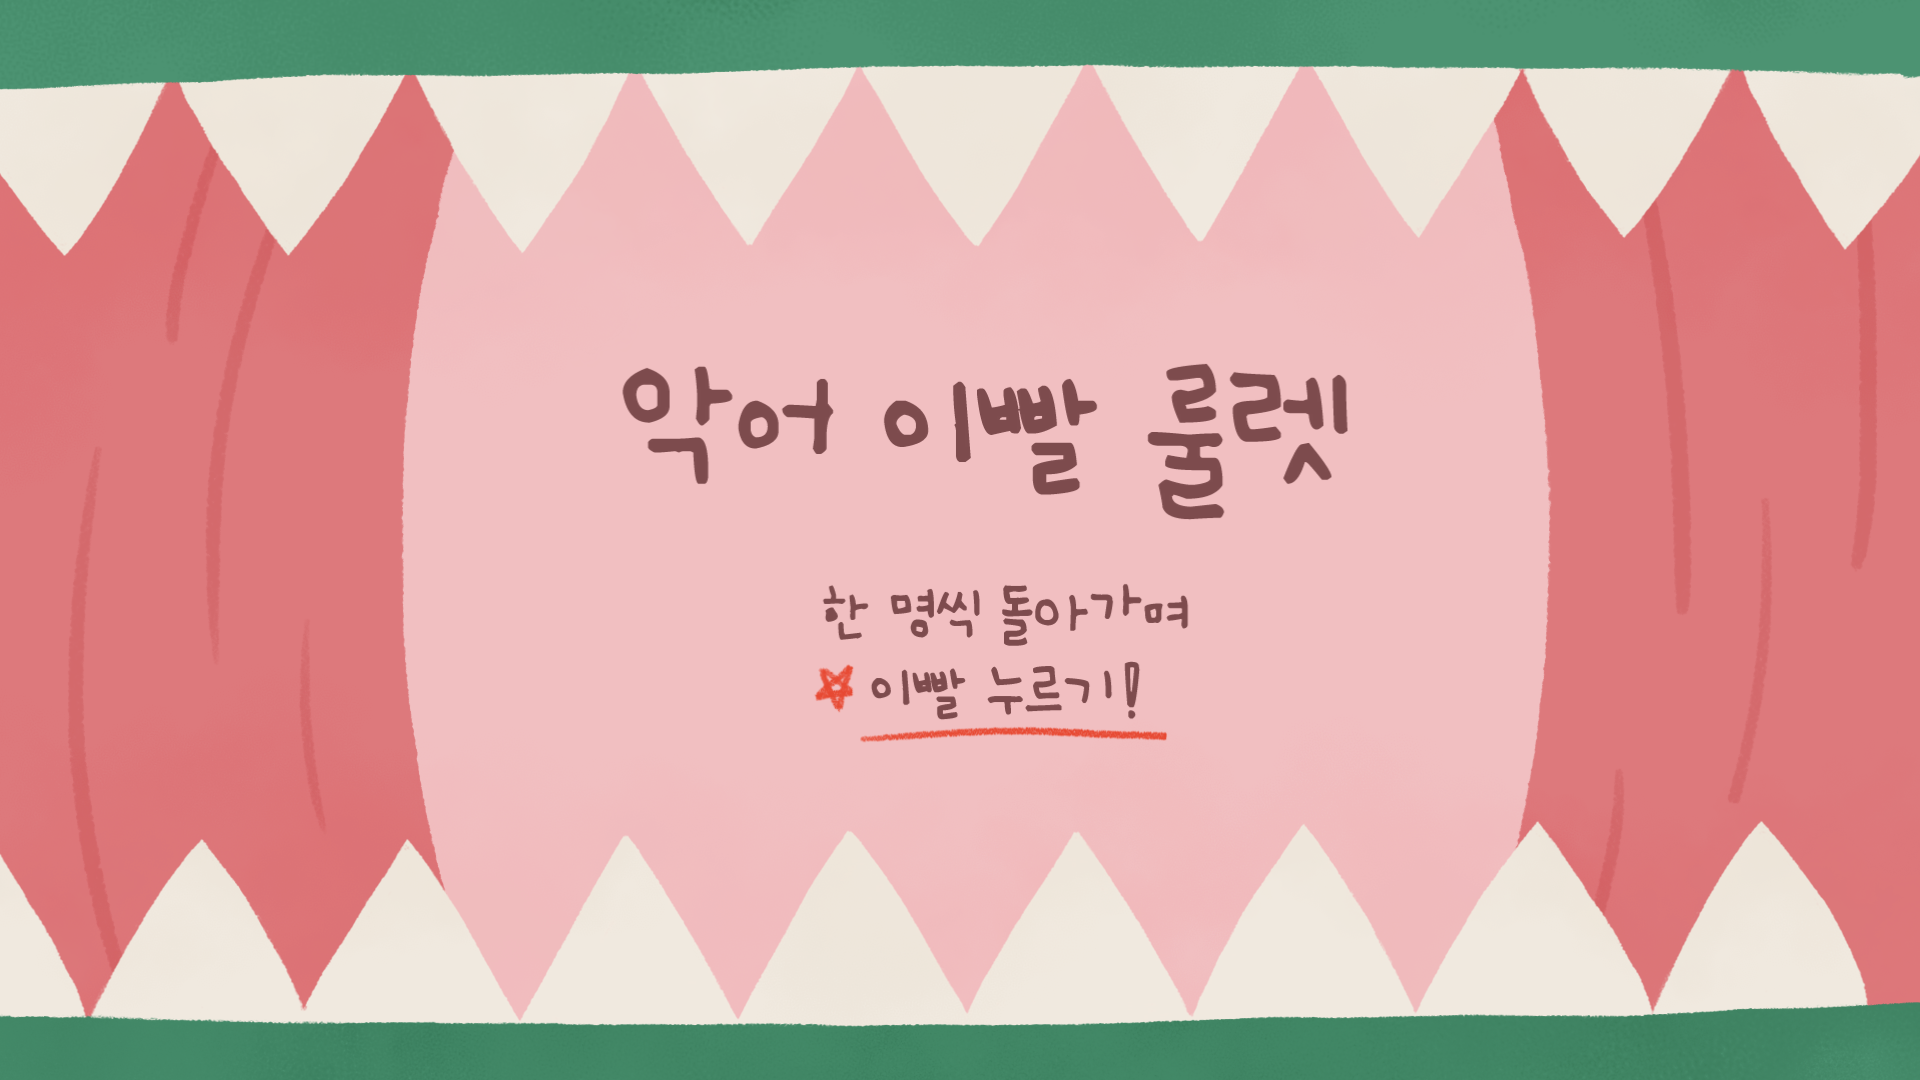 악어 이빨 룰렛
한 명씩 돌아가며
이빨 누르기!